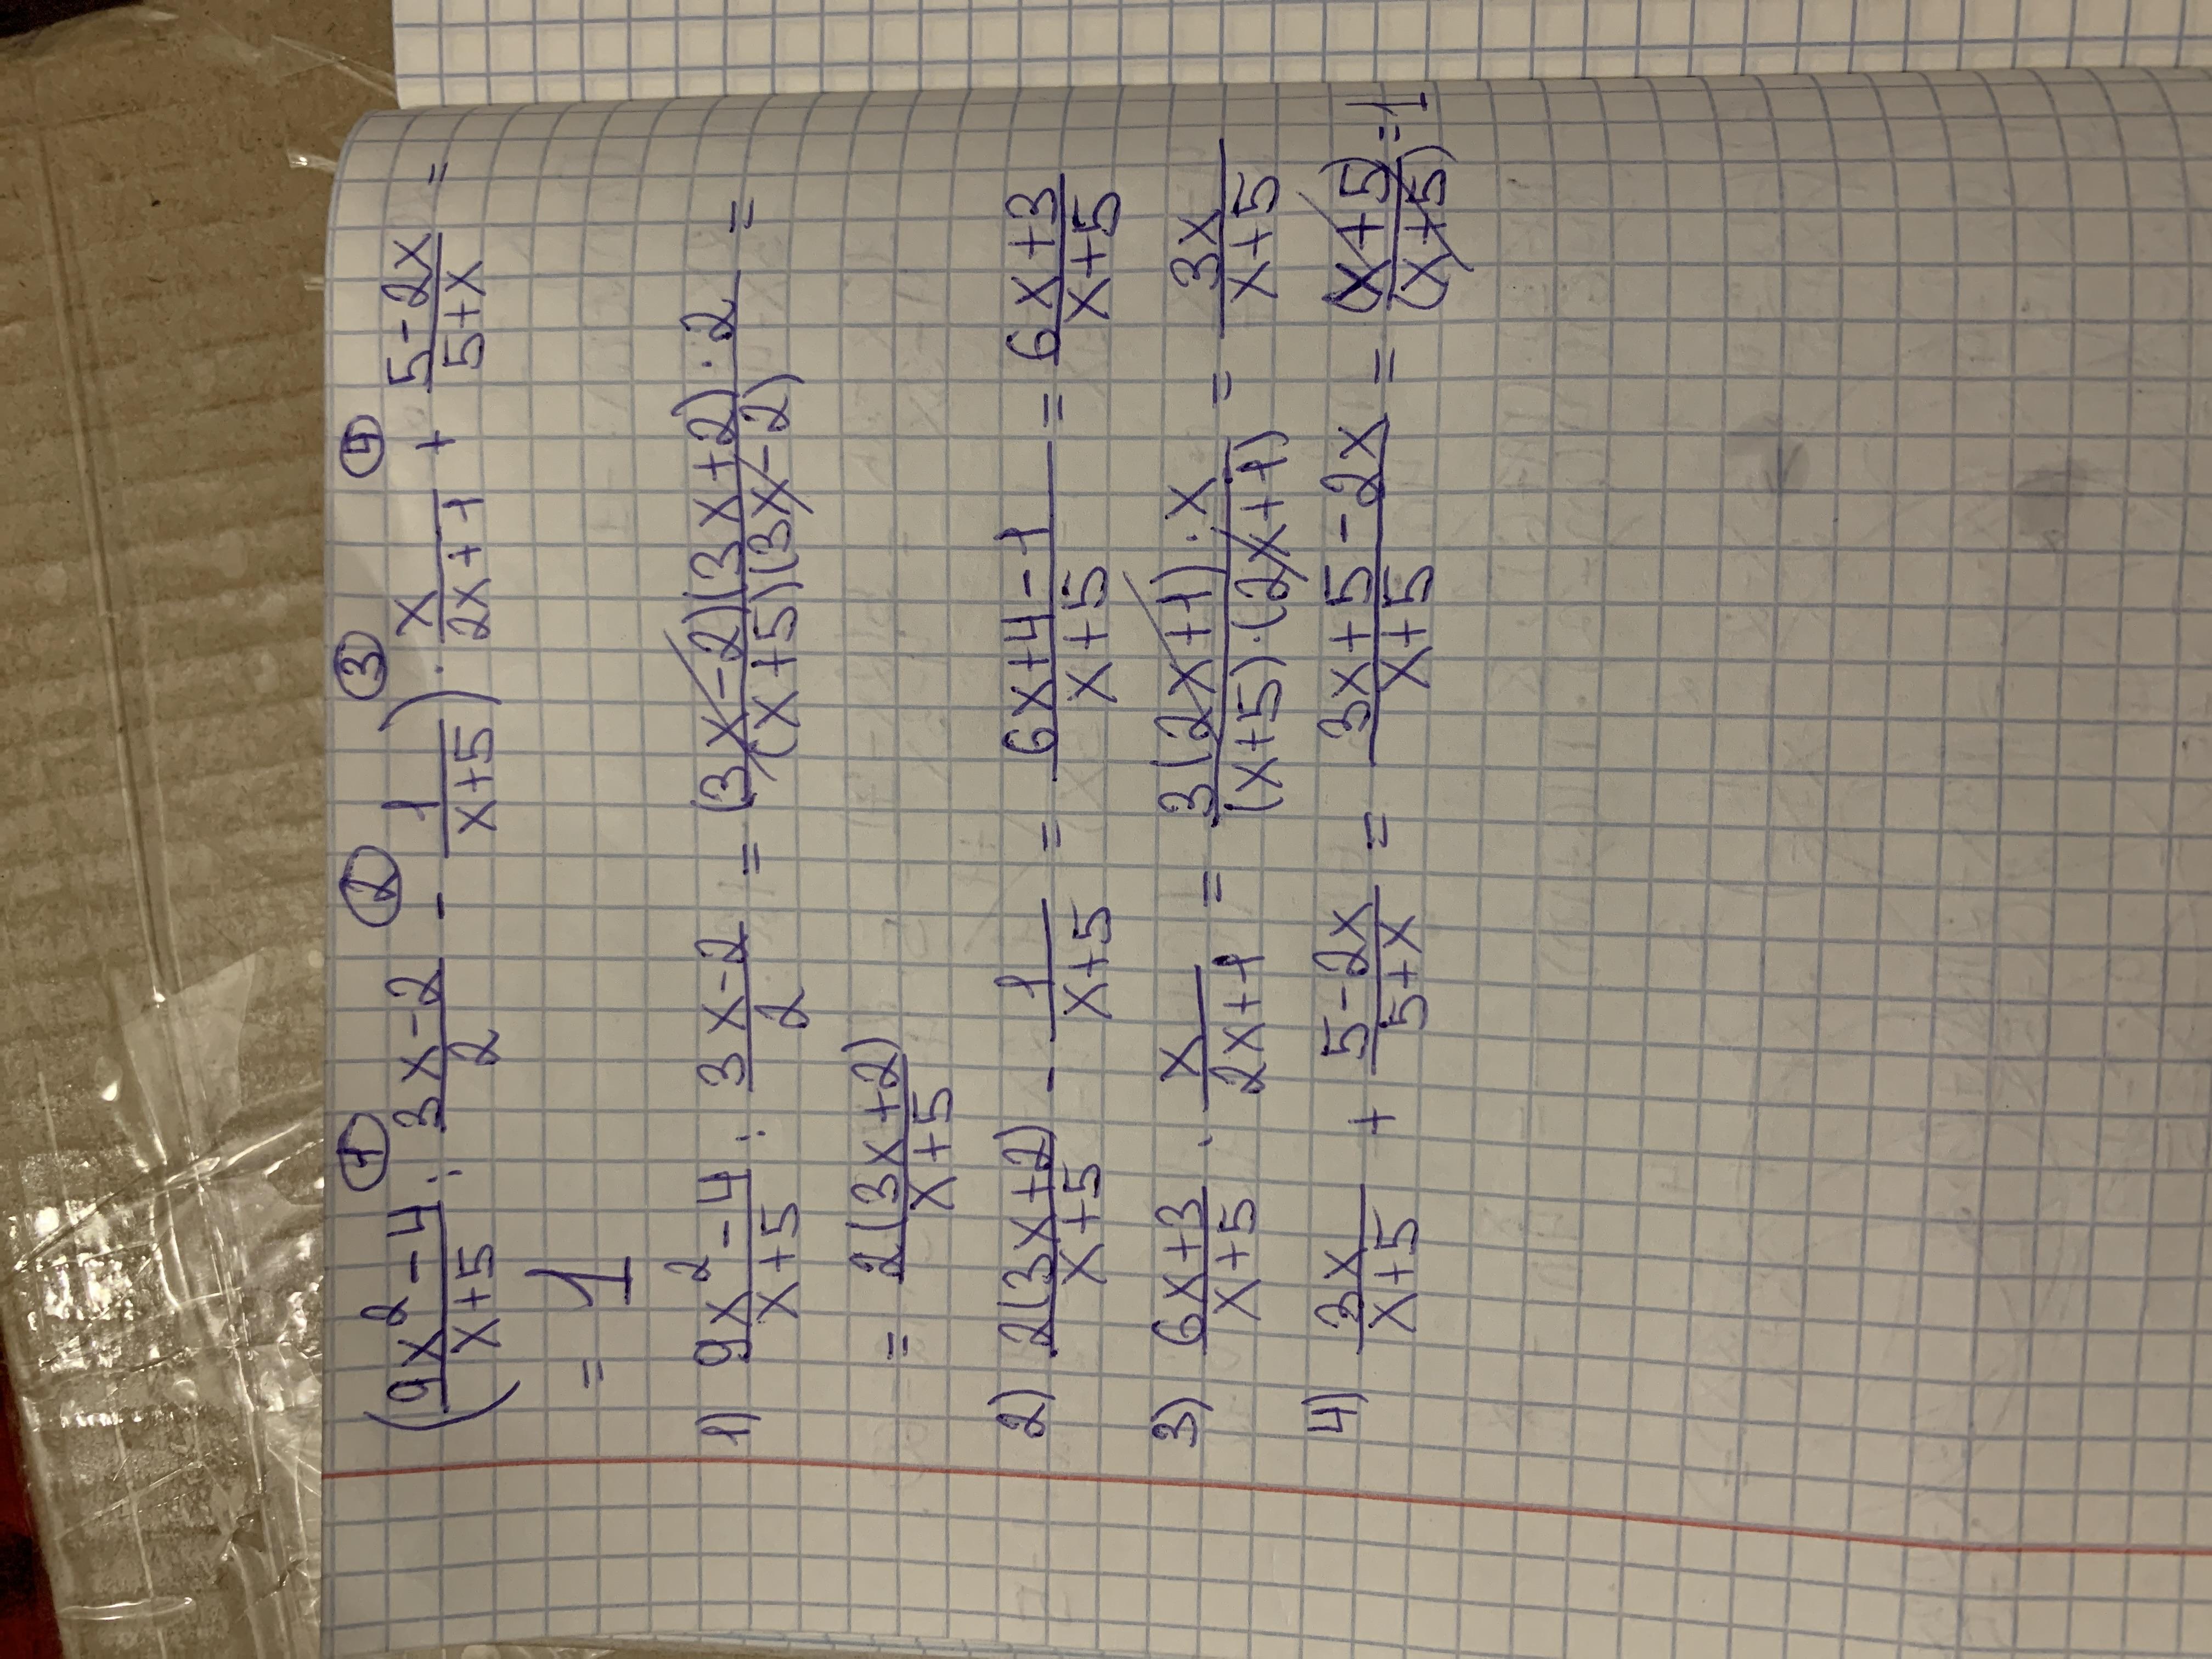 ① ② ③ ④
(9x²-4/x+5 : 3x-2/2 - 1/x+5) · x/2x+1 + 5-2x/5+x =
= 1
1) 9x²-4/x+5 : 3x-2/2 = (3x-2)(3x+2)·2/(x+5)(3x-2) =
= 2(3x+2)/x+5
2) 2(3x+2)/x+5 - 1/x+5 = 6x+4-1/x+5 = 6x+3/x+5
3) 6x+3/x+5 · x/2x+1 = 3(2x+1)·x/(x+5)·(2x+1) = 3x/x+5
4) 3x/x+5 + 5-2x/5+x = 3x+5-2x/x+5 = (x+5)/(x+5) = 1